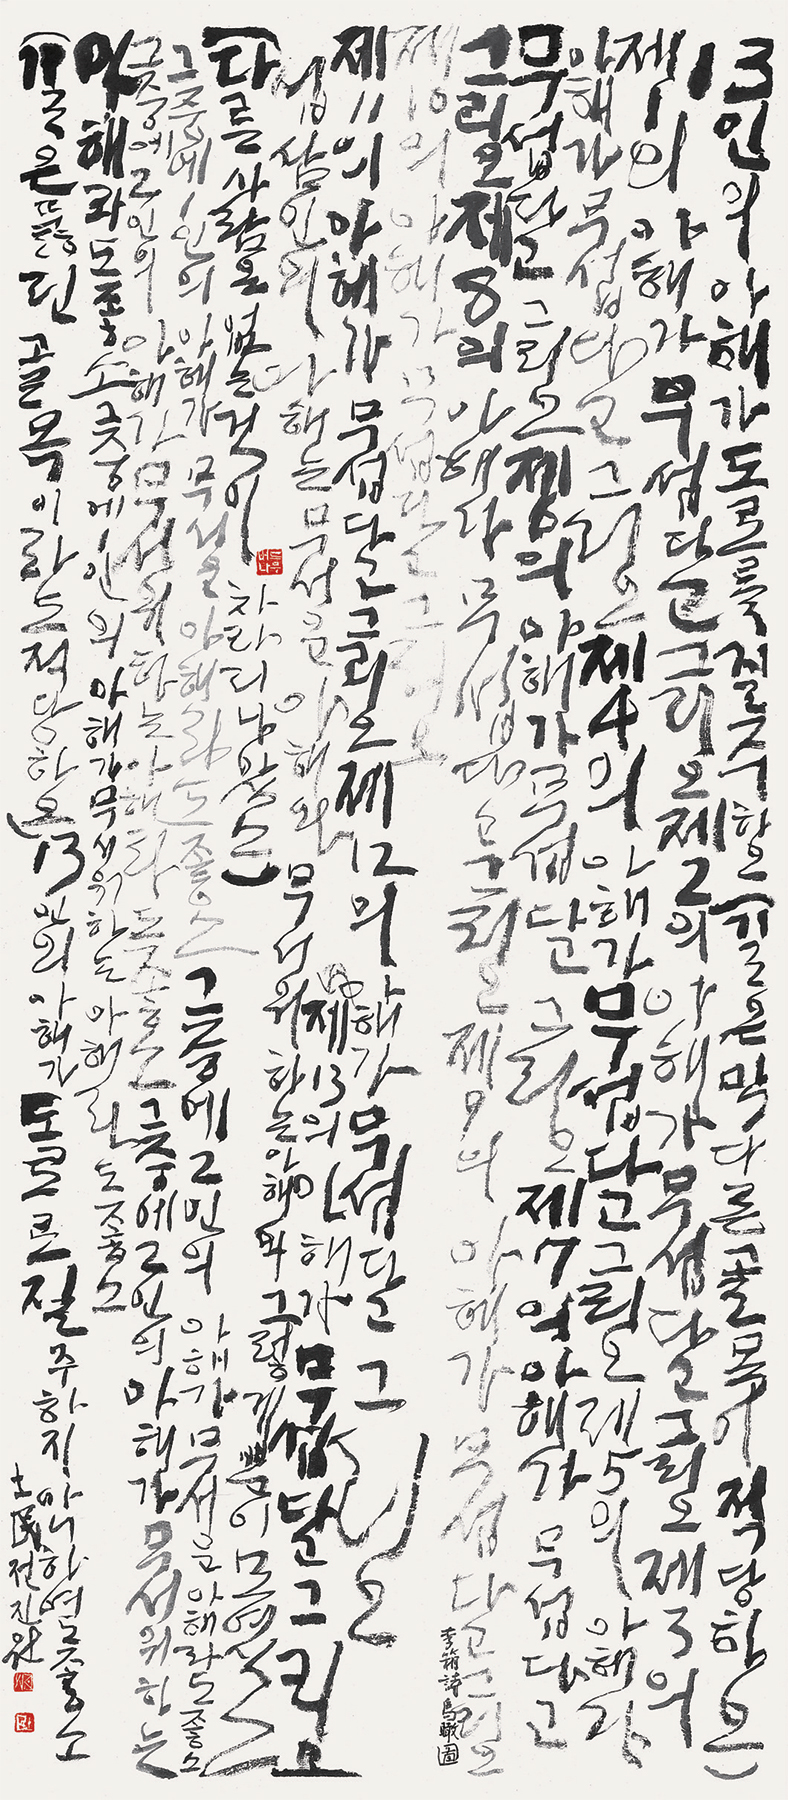 13인의 아해가 도로로 질주하오 (길은 막다른 골목이 적당하오)
제1의 아해가 무섭다고 그리오 제2의 아해가 무섭다고 그리오 제3의
아해가 무섭다고 그리오 제4의 아해가 무섭다고 그리오 제5의 아해가
무섭다고 그리오 제6의 아해가 무섭다고 그리오 제7의 아해가 무섭다고
그리오 제8의 아해가 무섭다고 그리오 제9의 아해가 무섭다고 그리오
제10의 아해가 무섭다고 그리오
李箱詩烏瞰圖
제11의 아해가 무섭다고 그리오 제12의 아해가 무섭다고 그리오
제13의 아해가 무섭다고 그리오
십삼인의 아해는 무서운 아해와 무서워하는 아해와 그렇게뿐이 모였소
(다른 사람은 없는 것이 차라리 나았소)
그중에 1인의 아해가 무서운 아해라도 좋소 그중에 2인의 아해가 무서운 아해라도 좋소
그중에 2인의 아해가 무서워하는 아해라도 좋소 그중에 2인의 아해가 무서워하는
아해라도 좋소 그중에 1인의 아해가 무서워하는 아해라도 좋소
(길은 뚫린 골목이라도 적당하오) 13인의 아해가 도로로 질주하지 아니하여도 좋소
土民 전진원